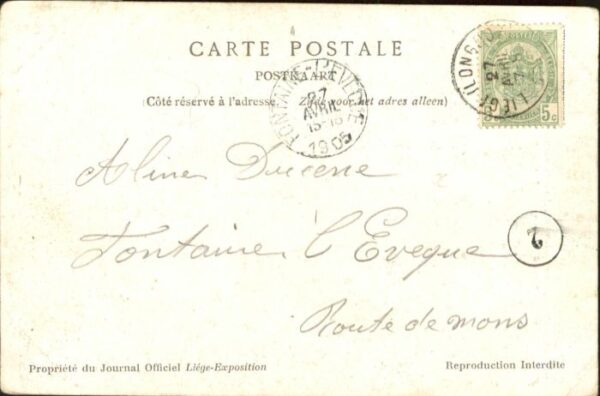 CARTE POSTALE
POSTKAART
Côté réservé à l'adresse. Zijde voor het adres alleen)
FONTAINE-L'EVEQUE
27
AVRIL
15-16
1905
LIEGE (LONGDOZ)
27
AVRIL
5 c
Aline Ducene
Fontaine l'Eveque
2
Route de mons
Propriété du Journal Officiel Liége-Exposition
Reproduction Interdite